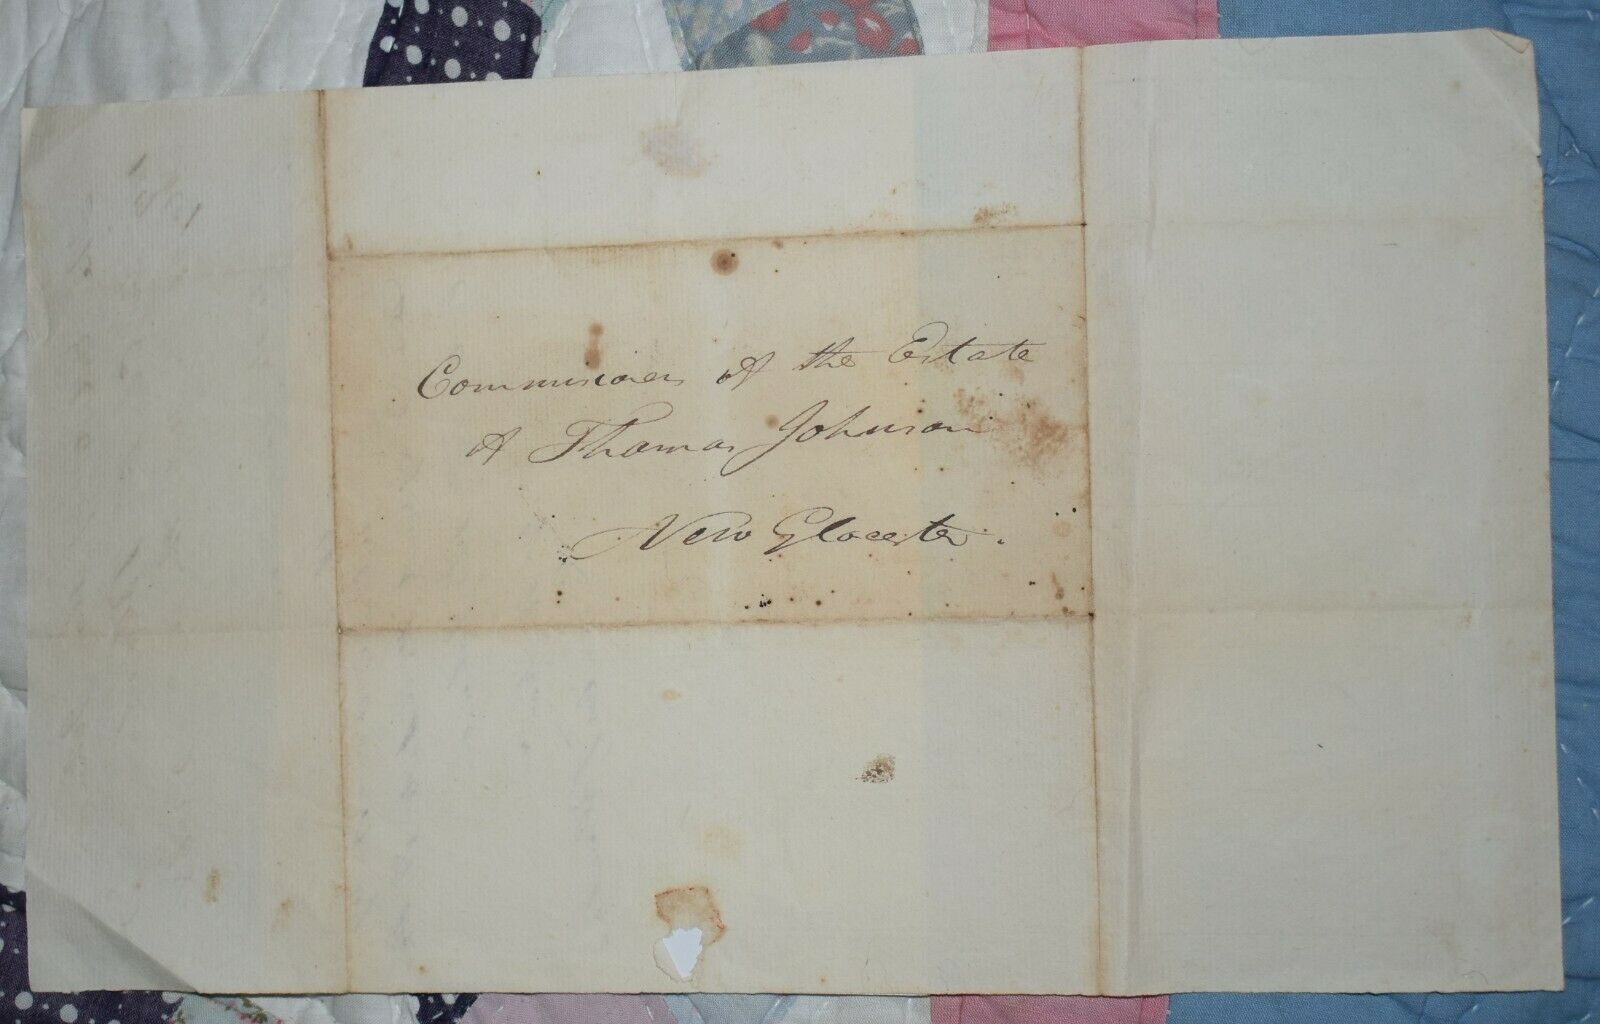 Commissioners of the Estate
of Thomas Johnson
New Glocester.